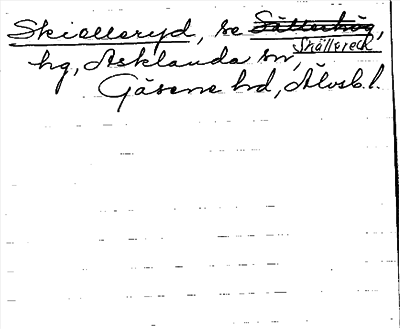 Skiælleryd, se Sätterhög,
Skällsreck
hg, Asklanda sn,
Gäsene hd, Älvsb. l.